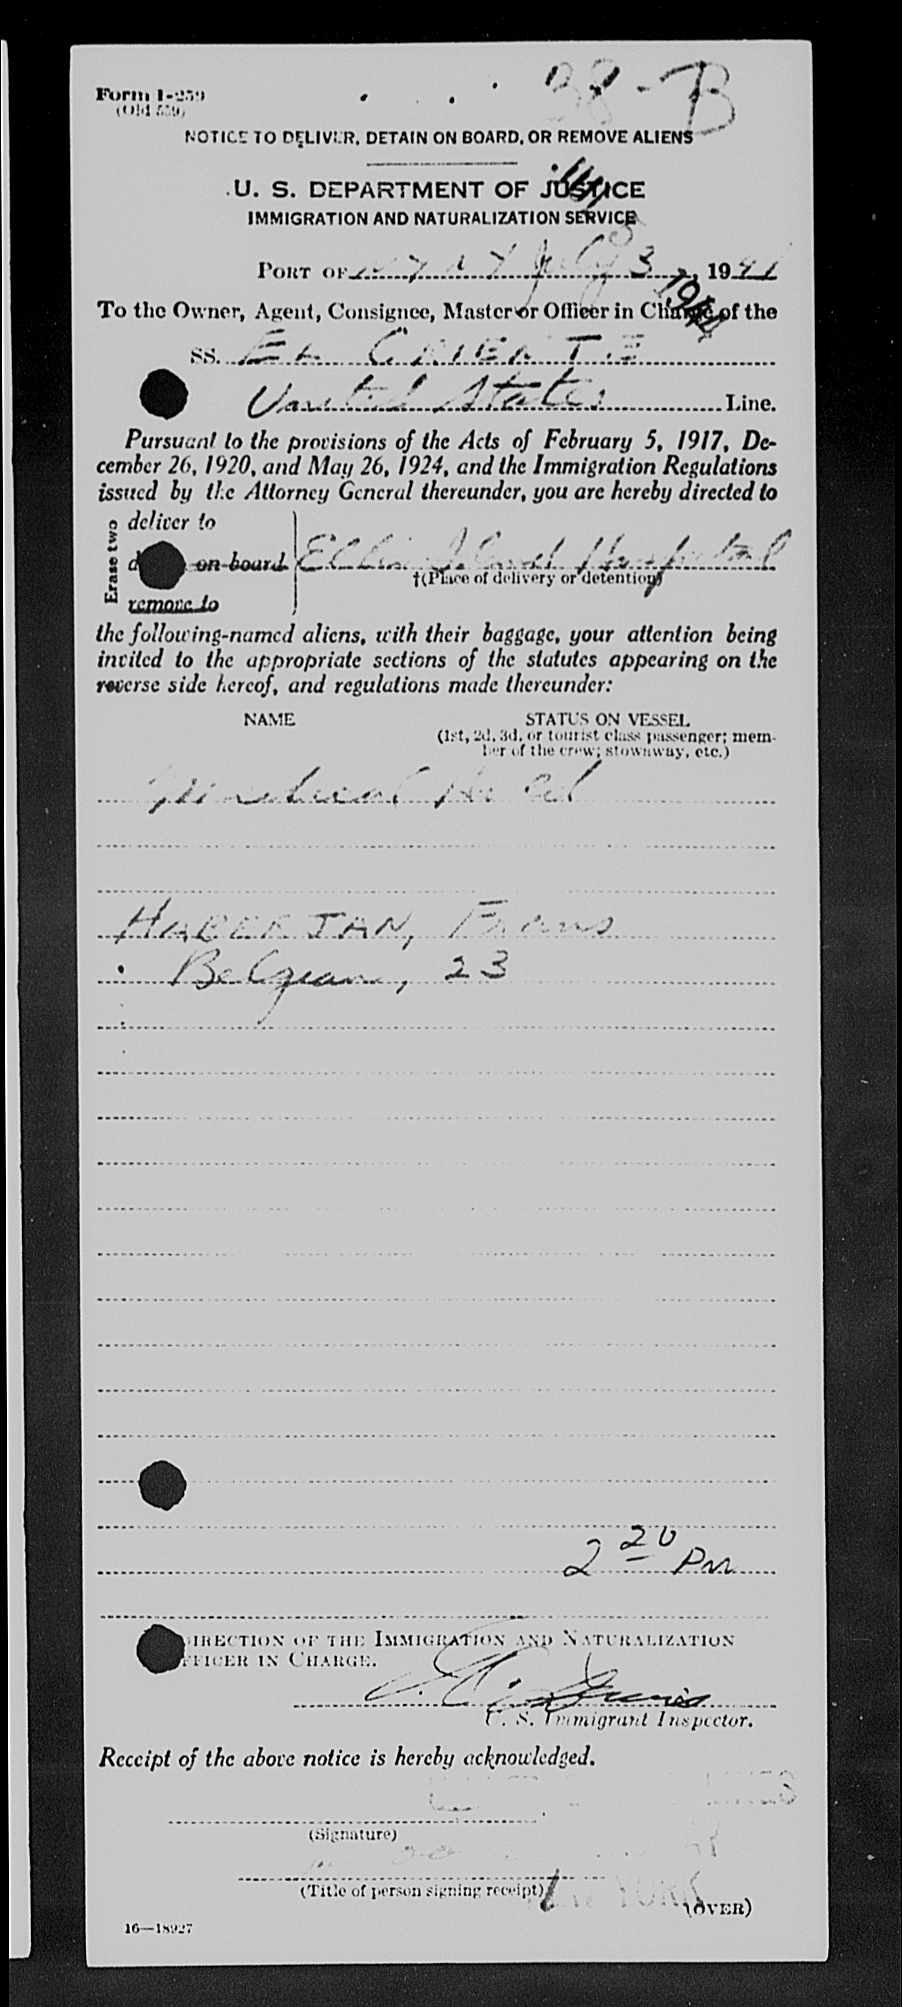 Form I-259
(Old 559)
38-B
NOTICE TO DELIVER, DETAIN ON BOARD, OR REMOVE ALIENS
U. S. DEPARTMENT OF JUSTICE
IMMIGRATION AND NATURALIZATION SERVICE
PORT OF N Y N Y July 3, 1941
To the Owner, Agent, Consignee, Master or Officer in Charge of the
SS. EL ORIENTE
United States Line.
Pursuant to the provisions of the Acts of February 5, 1917, De-
cember 26, 1920, and May 26, 1924, and the Immigration Regulations
issued by the Attorney General thereunder, you are hereby directed to
Erase two
deliver to
on board Ellis Island Hospital
†(Place of delivery or detention)
remove to
the following-named aliens, with their baggage, your attention being
invited to the appropriate sections of the statutes appearing on the
reverse side hereof, and regulations made thereunder:
NAME STATUS ON VESSEL
(1st, 2d, 3d, or tourist class passenger; mem-
ber of the crew; stowaway, etc.)
Medical Hold
HABERJAN, Frans
Belgian, 23
2 20 PM
DIRECTION OF THE IMMIGRATION AND NATURALIZATION
OFFICER IN CHARGE.
U. S. Immigrant Inspector.
Receipt of the above notice is hereby acknowledged.
(Signature)
(Title of person signing receipt)
NEW YORK
(OVER)
16—18927